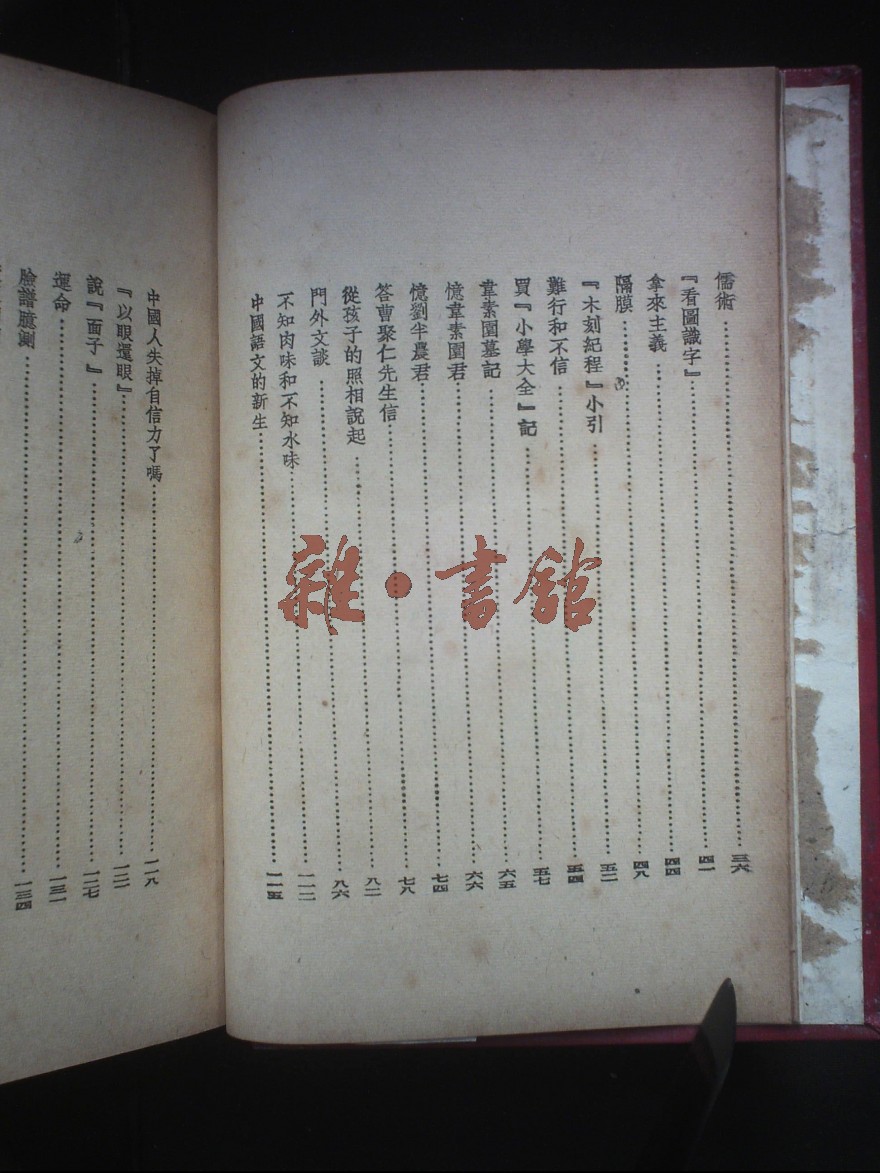 儒術……三六
『看圖識字』……四一
拿來主義……四四
隔膜……四八
『木刻紀程』小引……五二
難行和不信……五四
買『小學大全』記……五七
韋素園墓記……六五
憶韋素園君……六六
憶劉半農君……七四
答曹聚仁先生信……七八
從孩子的照相說起……八二
門外文談……八六
不知肉味和不知水味……一一二
中國語文的新生……一一五
中國人失掉自信力了嗎……一一八
『以眼還眼』……一二二
說『面子』……一二七
運命……一三一
臉譜臆測……一三四
雜·書館